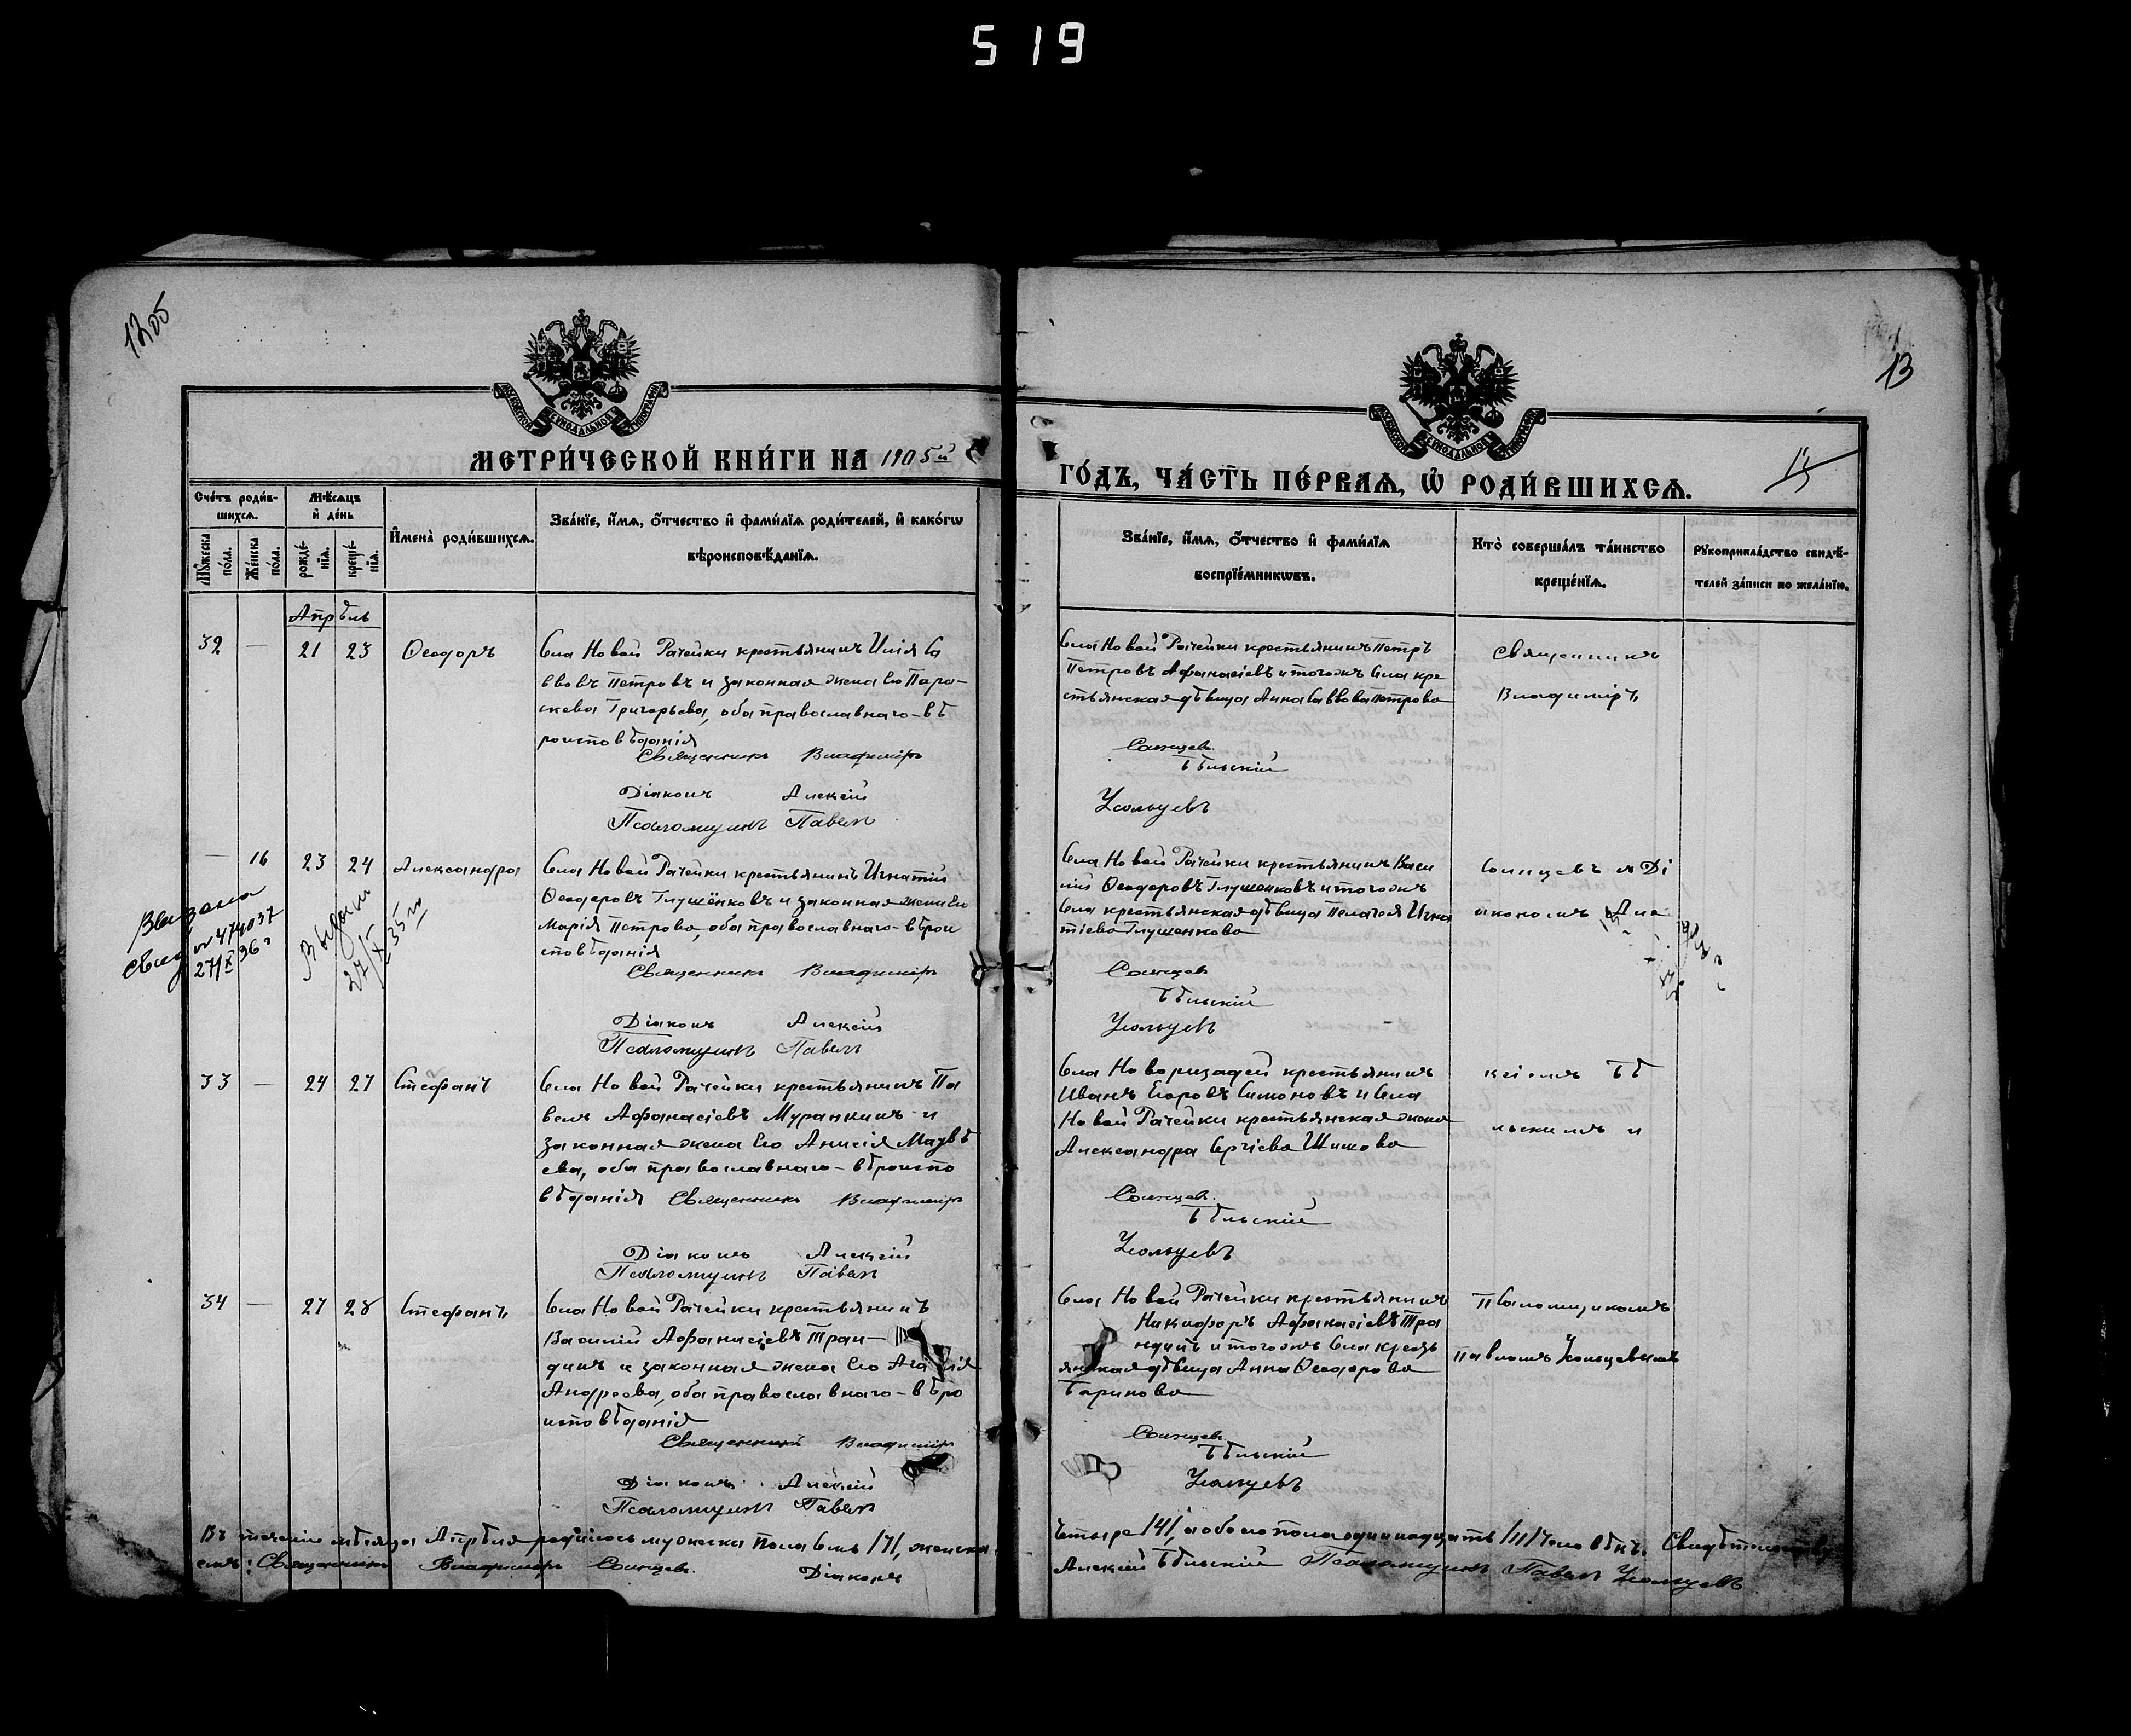 519
1905
13
МЕТРИ́ЧЕСКОЙ КНИ́ГИ НА 1905й
ГО́ДЪ, ЧА́СТЬ ПЕ́РВАѦ, Ѡ҆ РОДИ́ВШИХСѦ.
МОСКОВСКОЙ СѴНОДАЛЬНОЙ ТИПОГРАФІИ
МОСКОВСКОЙ СѴНОДАЛЬНОЙ ТИПОГРАФІИ
Сче́тъ роди́в-
шихсѧ.
Мѣ́сѧцъ
и҆ де́нь
Мꙋ́жеска
по́ла.
Же́нска
по́ла.
рожде́-
нїѧ.
креще́-
нїѧ.
И҆мена̀ роди́вшихсѧ.
Зва́нїе, и҆́мѧ, ѻ҆́тчество и҆ фами́лїѧ роди́телей, и҆ како́гѡ
вѣроисповѣ́данїѧ.
Зва́нїе, и҆́мѧ, ѻ҆́тчество и҆ фами́лїѧ
воспрїе́мникѡвъ.
Кто̀ соверша́лъ та́инство
креще́нїѧ.
Рꙋкоприкла́дство свидѣ́-
телей за́писи по жела́нїю.
Апрѣль
32 — 21 23 Ѳеодоръ
Села Новой Рачейки крестьянинъ Илія Са
ввовъ Петровъ и законная жена его Пара-
скева Григорьева, оба православнаго-вѣ
роисповѣданія
Священникъ Владиміръ
Діаконъ Алексій
Псаломщикъ Павелъ
Села Новой Рачейки крестьянинъ Петръ
Петровъ Афанасіевъ и тогожъ села кре
стьянская дѣвица Анна Саввова Петрова
Солнцевъ
Бѣльскій
Усольцевъ
Священникъ
Владиміръ
— 16 23 24 Александра
Села Новой Рачейки крестьянинъ Игнатій
Ѳеодоровъ Глушёнковъ и законная жена его
Марія Петрова, оба православнаго-вѣрои
сповѣданія
Священникъ Владиміръ
Діаконъ Алексій
Псаломщикъ Павелъ
Выдана
свид. № 474037
27/X 36г
Выдано
27/X 35 г
Села Новой Рачейки крестьянинъ Васи
лій Ѳеодоровъ Глушенковъ и тогожъ
села крестьянская дѣвица Пелагея Игна
тіева Глушенкова
Солнцевъ
Бѣльскій
Усольцевъ
Солнцевъ съ Ді
акономъ Але
33 — 24 27 Стефанъ
Села Новой Рачейки крестьянинъ Па
велъ Афанасіевъ Муранкинъ и
законная жена его Анисія Матвѣ
ева, оба православнаго-вѣроиспо
вѣданія Священникъ Владиміръ
Діаконъ Алексій
Псаломщикъ Павелъ
Села Новоризадей крестьянинъ
Иванъ Егоровъ Симоновъ и села
Новой Рачейки крестьянская жена
Александра Сергіева Шишова
Солнцевъ
Бѣльскій
Усольцевъ
ксіемъ Бѣ
льскимъ и
34 — 27 28 Стефанъ
Села Новой Рачейки крестьянинъ
Василій Афанасіевъ Тран-
динъ и законная жена его
Андреева, оба православнаго-вѣро
исповѣданія
Священникъ Владиміръ
Діаконъ Алексій
Псаломщикъ Павелъ
Села Новой Рачейки крестьянинъ
Никифоръ Афанасіевъ Тра
ндинъ и тогожъ села кресть
янская дѣвица Анна Ѳеодорова
Баринова
Солнцевъ
Бѣльскій
Усольцевъ
Псаломщикомъ
Павломъ Усольцевымъ
Въ теченіи мѣсяца Апрѣля родилось мужеска пола семь /7/, женска
четыре /4/, а обоего пола одиннадцать /11/ человѣкъ.
Священникъ Владиміръ Солнцевъ Діаконъ
Алексій Бѣльскій Псаломщикъ Павелъ Усольцевъ